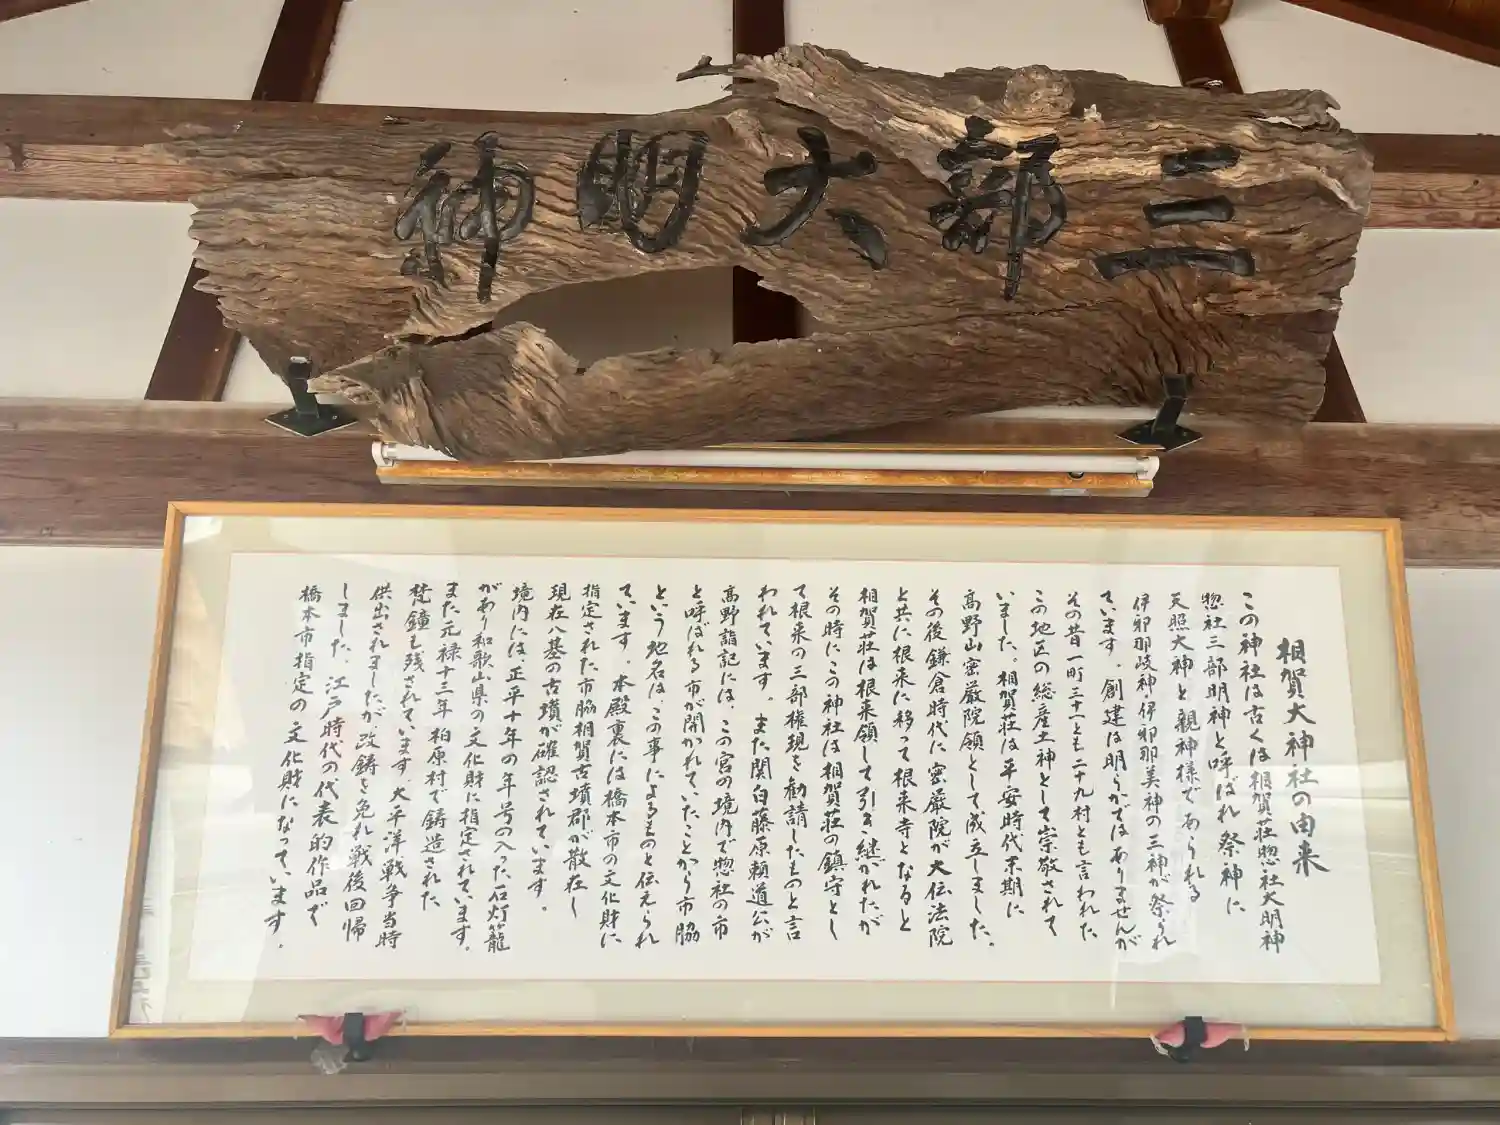 三部大明神
相賀大神社の由来
この神社は古くは相賀荘惣社大明神
惣社三部明神と呼ばれ祭神に
天照大神と親神様であられる
伊邪那岐神・伊邪那美神の三神が祭られ
ています。創建は明らかではありませんが
その昔一町三十一とも二十九村とも言われた
この地区の総産土神として崇敬されて
いました。相賀荘は平安時代末期に
高野山密厳院領として成立しました。
その後鎌倉時代に密厳院が大伝法院
と共に根来に移って根来寺となると
相賀荘は根来領して引き継がれたが
その時にこの神社は相賀荘の鎮守とし
て根来の三部権現を勧請したものと言
われています。また関白藤原頼道公が
高野詣記には、この宮の境内で惣社の市
と呼ばれる市が開かれていたことから市脇
という地名は、この事によるものと伝えられ
ています。本殿裏には橋本市の文化財に
指定された市脇相賀古墳郡が散在し
現在八基の古墳が確認されています。
境内には、正平十年の年号の入った石灯籠
があり和歌山県の文化財に指定されています。
また元禄十三年柏原村で鋳造された
梵鐘も残されています。太平洋戦争当時
供出されましたが改鋳を免れ戦後回帰
しました。江戸時代の代表的作品で
橋本市指定の文化財になっています。